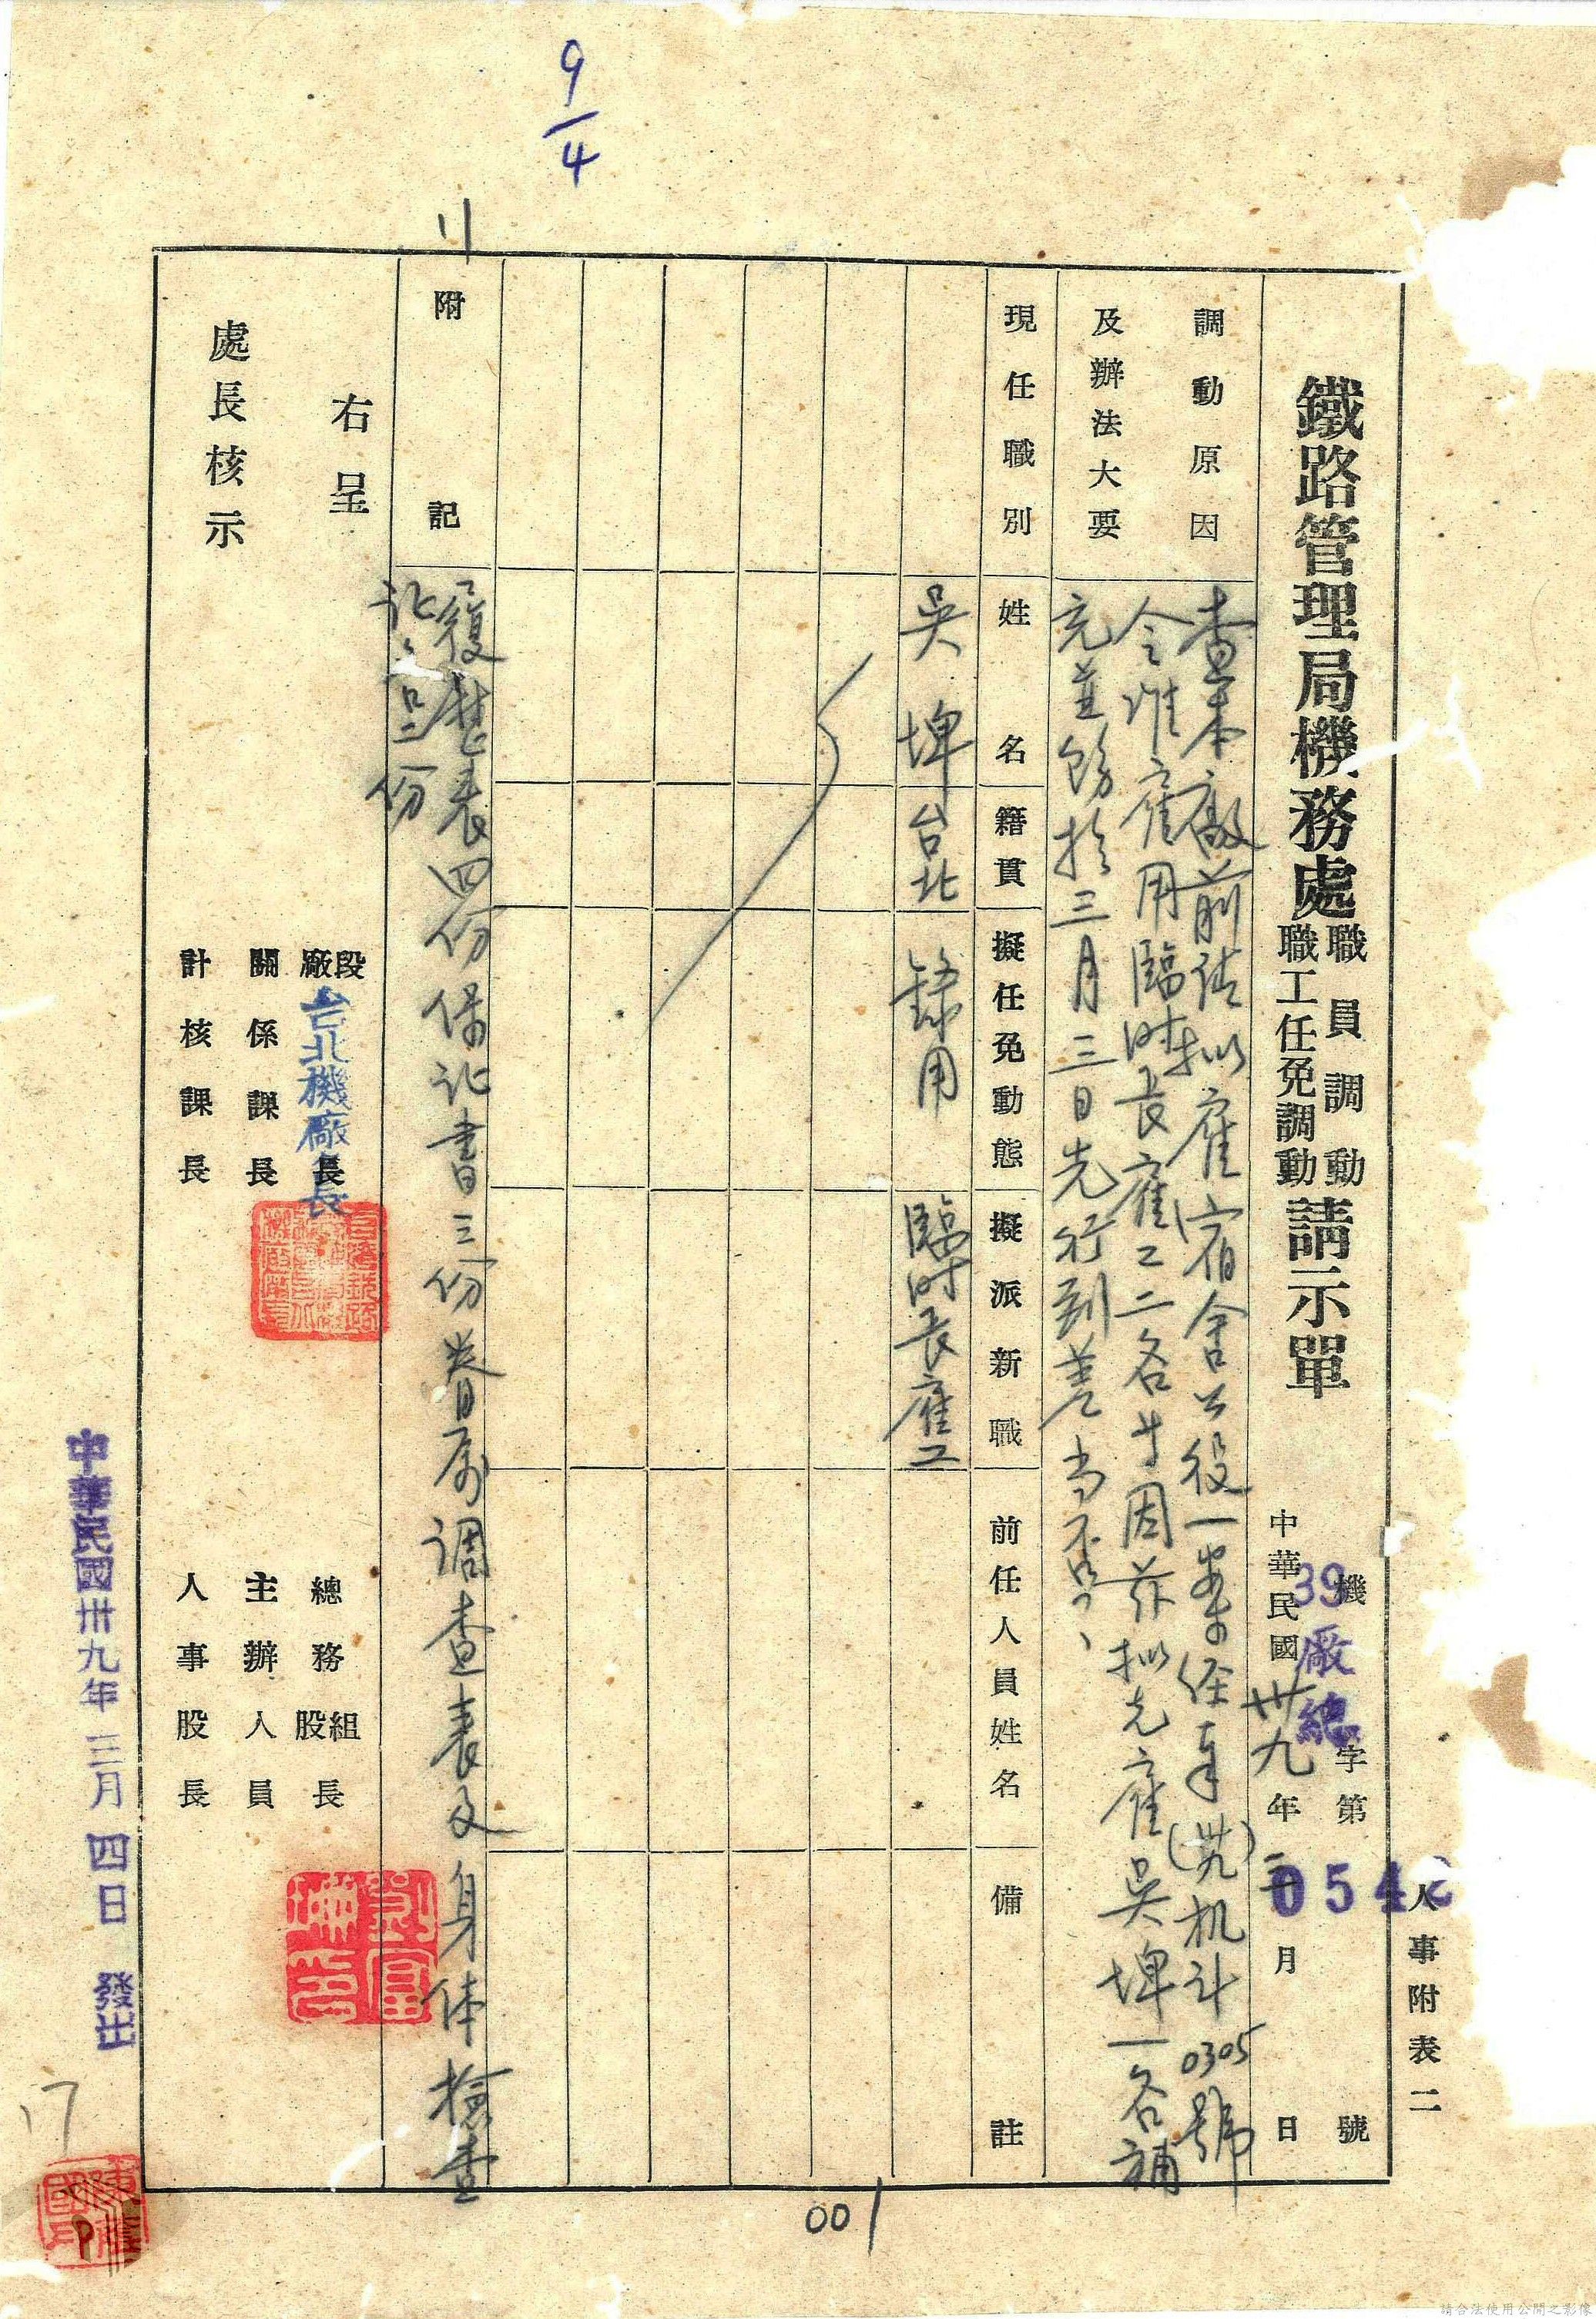 9/4
人事附表二
鐵路管理局機務處
職員調動
職工任免調動
請示單
機 字第 號
39 廠總 054
中華民國卅九年三月 日
調動原因
及辦法大要
查本廠前請拟雇宿舍公役一案經奉(卅九)机计0305號
令准雇用臨时長雇工二名 因兹拟先雇吳埤一名補
充並飭於三月三日先行到差当否、
現任職別
姓名
籍貫
擬任免動態
擬派新職
前任人員姓名
備註
吳埤
台北
錄用
臨时長雇工
附記
履歷表四份保证書三份眷属调查表及身体檢查
证 二份
右呈
處長核示
段廠長
台北機廠長
關係課長
計核課長
總務組股長
主辦人員
人事股長
中華民國卅九年三月四日發出
17
001
請合法使用公開之影像